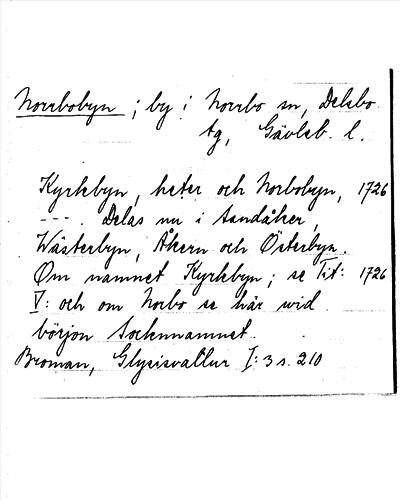 Norrbobyn ; by i Norrbo sn, Delsbo
tg, Gävleb. l.
Kyrkbyn, heter och Norbobyn, 1726
---. Delas nu i Sandåker,
Wästerbyn, Åkern och Österbyn.
Om namnet Kyrkbyn; se Tit: 1726
V: och om Norbo se här wid
början Socknnamnet.
Broman, Glysisvallur I: 3 s. 210